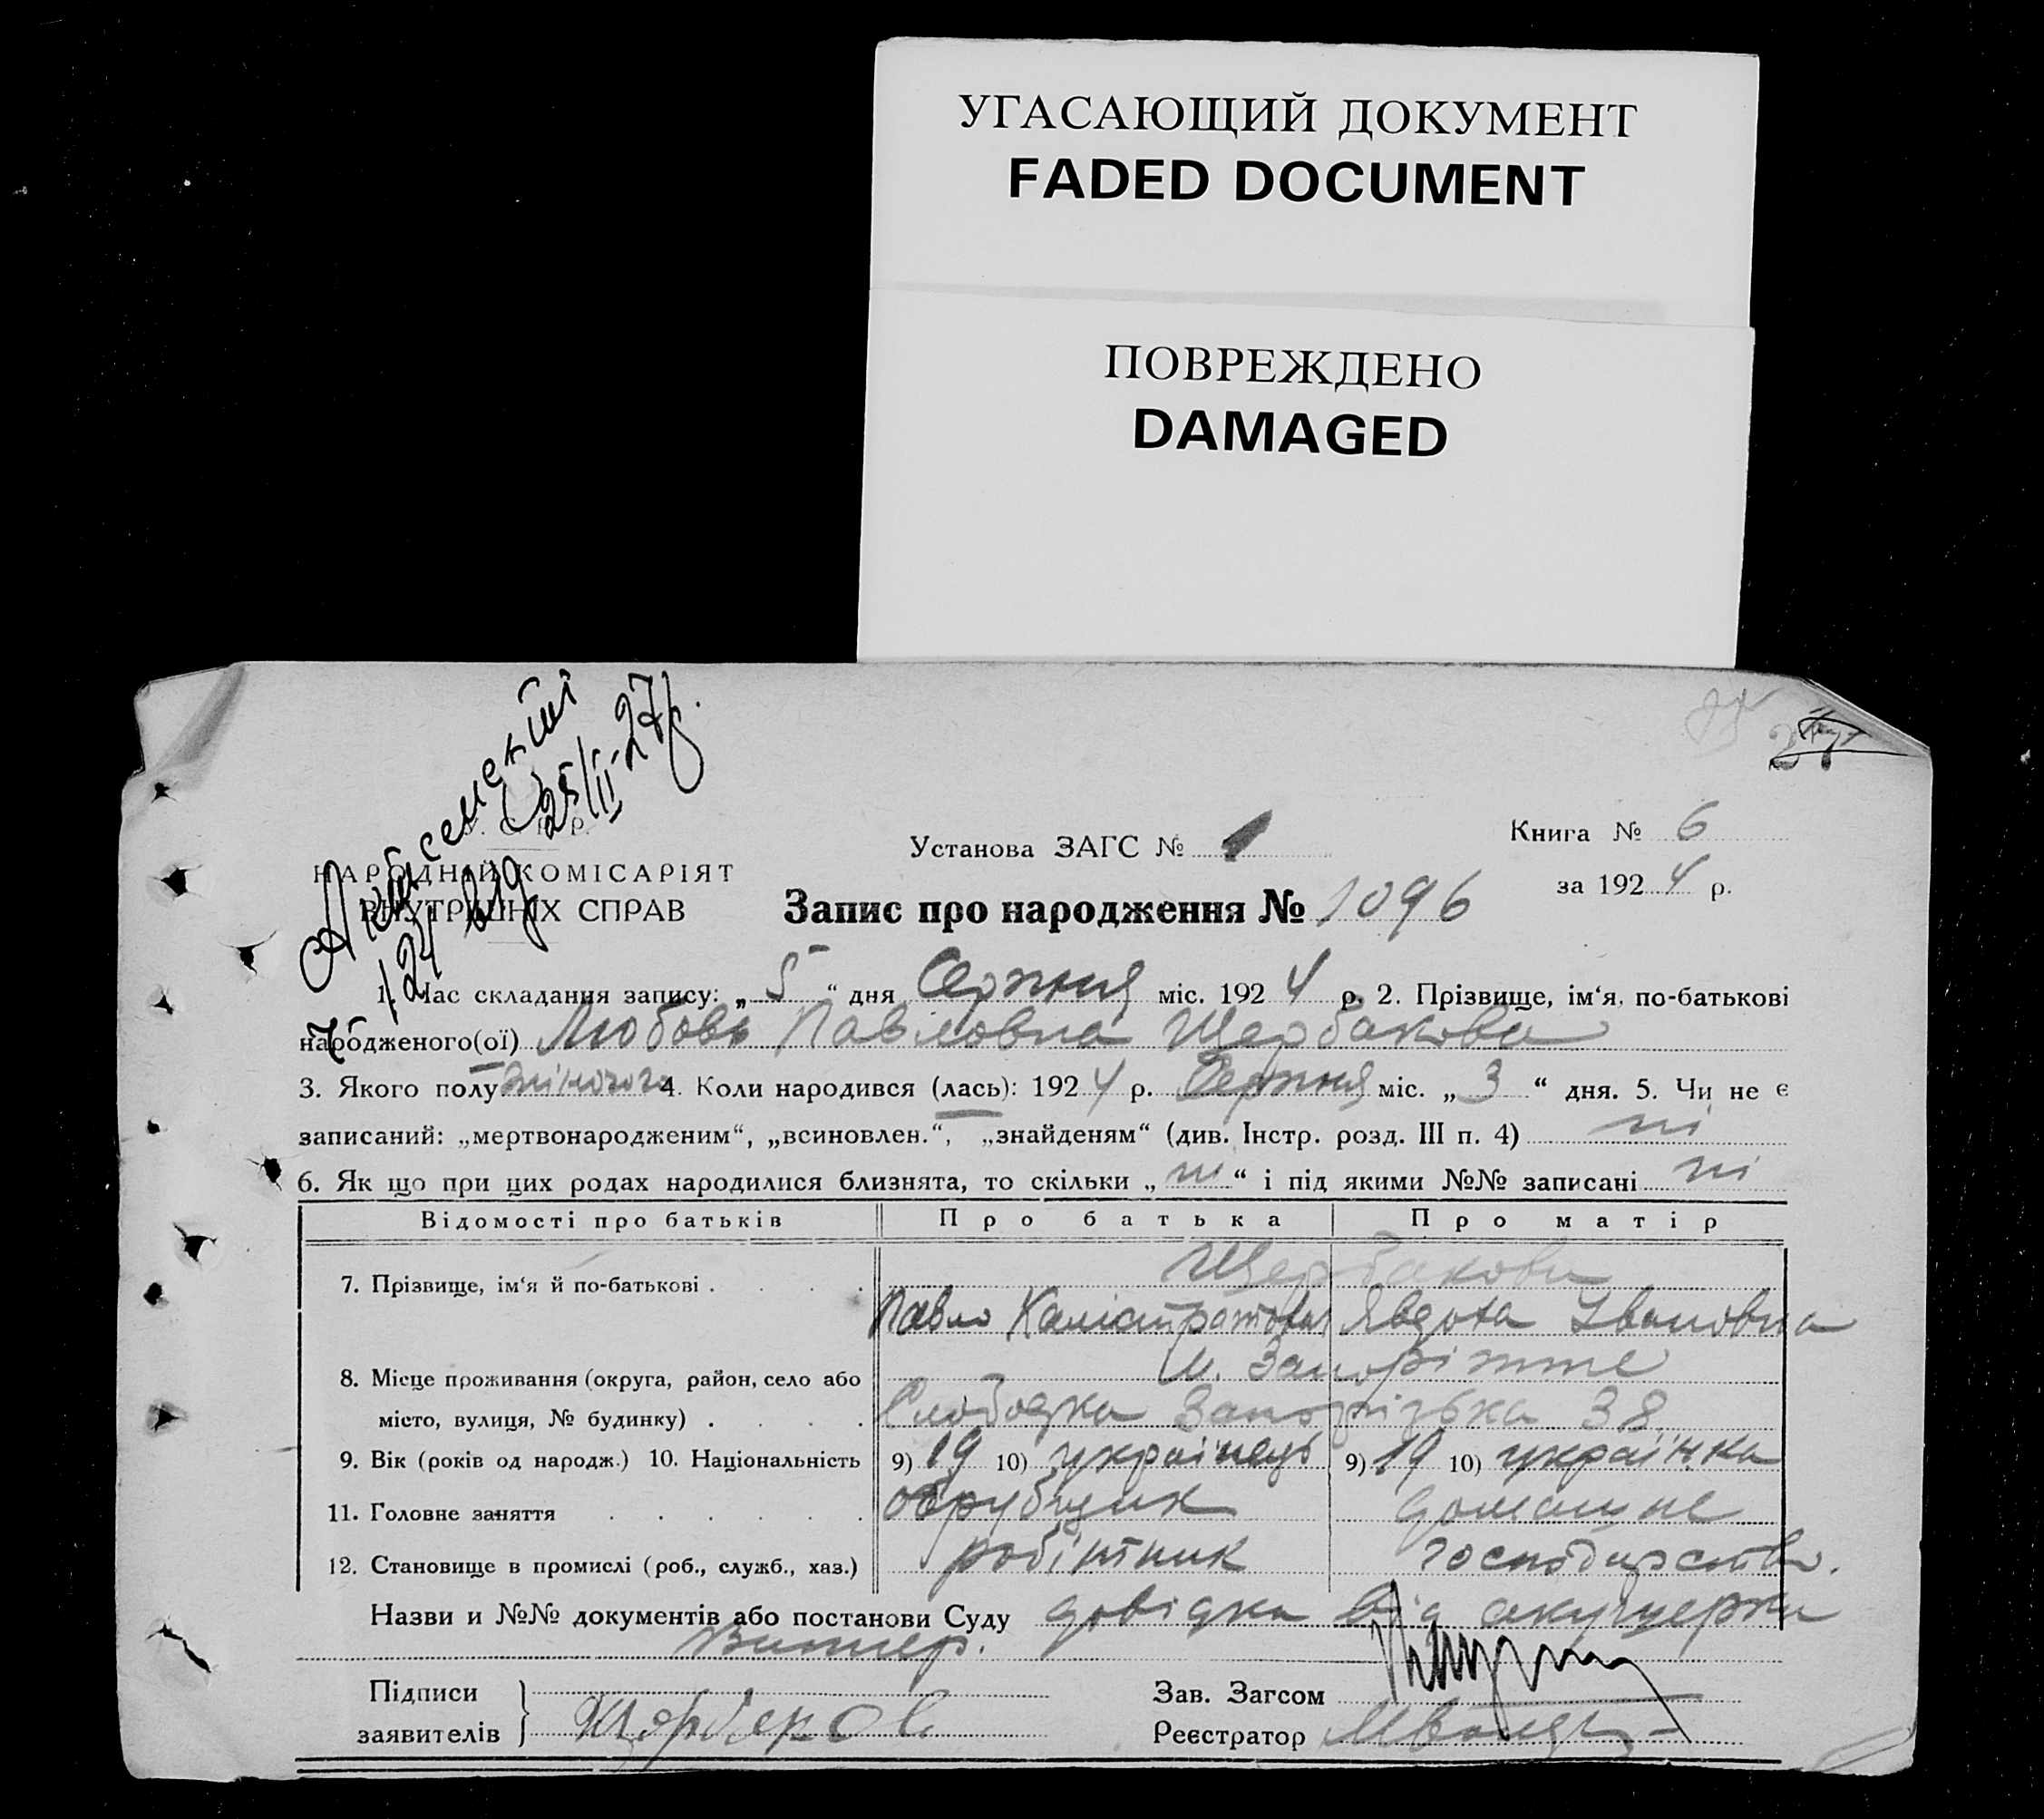 УГАСАЮЩИЙ ДОКУМЕНТ
FADED DOCUMENT
ПОВРЕЖДЕНО
DAMAGED
25/II-27р.
НАРОДНИЙ КОМІСАРІЯТ
ВНУТРІШНІХ СПРАВ
Установа ЗАГС № 1
Книга № 6
за 1924 р.
Запис про народження № 1096
1. Час складання запису: „5“ дня Серпня міс. 1924 р. 2. Прізвище, ім‘я, по-батькові
народженого(ої) Любовь Павловна Щербакова
3. Якого полу жіночого 4. Коли народився (лась): 1924 р. Серпня міс. „3“ дня. 5. Чи не є
записаний: „мертвонародженим“, „всиновлен.“, „знайденям“ (див. Інстр. розд. III п. 4) ні
6. Як що при цих родах народилися близнята, то скільки „ні“ і під якими №№ записані ні
Відомості про батьків Про батька Про матір
Щербакови
7. Прізвище, ім‘я й по-батькові . . . .
Павло Калістратович Явдоха Івановна
м. Запоріжже
8. Місце проживання (округа, район, село або
місто, вулиця, № будинку) . . . . Слободка Запорізька 38
9. Вік (років од народж.) 10. Національність 9) 19 10) українець 9) 19 10) українка
11. Головне заняття . . . . . . обрубщик домашне
12. Становище в промислі (роб., служб., хаз.) робітник господарство.
Назви и №№ документів або постанови Суду довідка від акушерки
Підписи
заявителів Щербаков
Зав. Загсом
Реєстратор